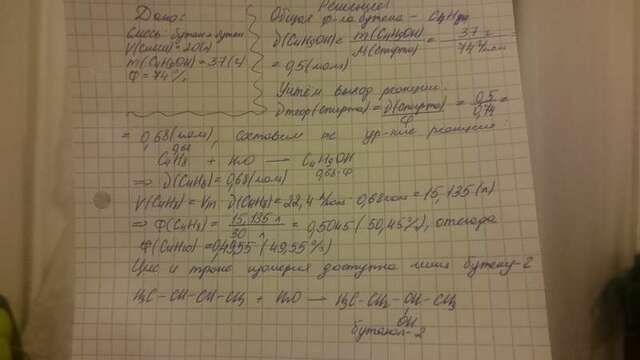 Решение:
Дано:
Смесь бутен и бутан
V(смеси) = 30(л)
m(C₄H₉OH) = 37(г)
φ = 74%
Общая ф-ла бутена – C₄H₈
ν(C₄H₉OH) = m(C₄H₉OH) / M(спирта) = 37 г / 74 г/моль =
= 0,5(моль)
Учтём выход реакции:
ν теор(спирта) = ν(спирта) / φ = 0,5 / 0,74 =
= 0,68(моль), составим ур-ние реакции:
0,68
C₄H₈ + H₂O → C₄H₉OH
0,68·φ
⇒ ν(C₄H₈) = 0,68(моль)
V(C₄H₈) = Vm · ν(C₄H₈) = 22,4 л/моль · 0,68моль = 15,135(л)
⇒ φ(C₄H₈) = 15,135 л / 30 л = 0,5045 (50,45%), отсюда
φ(C₄H₁₀) = 0,4955 (49,55%)
Цис и транс изомерия доступна лишь бутену-2
H₃C – CH – CH – CH₃ + H₂O → H₃C – CH₂ – CH – CH₃
OH
бутанол-2